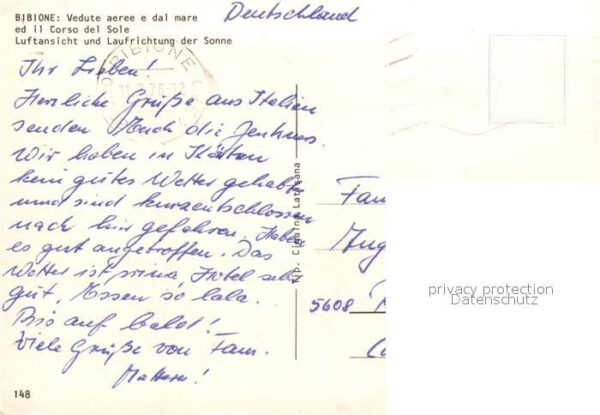 BIBIONE: Vedute aeree e dal mare
ed il Corso del Sole
Luftansicht und Laufrichtung der Sonne
Deutschland
BIBIONE
Ihr Lieben!
Herzliche Grüße aus Italien
senden Euch die
Wir haben in Kärnten
kein gutes Wetter gehabt
und sind kurzentschlossen
nach hier gefahren. Haben
es gut angetroffen. Das
Wetter ist prima, Hotel sehr
gut, Essen so lala.
Bis auf bald!
Viele Grüße von Fam.
Fam
5608
148
privacy protection
Datenschutz